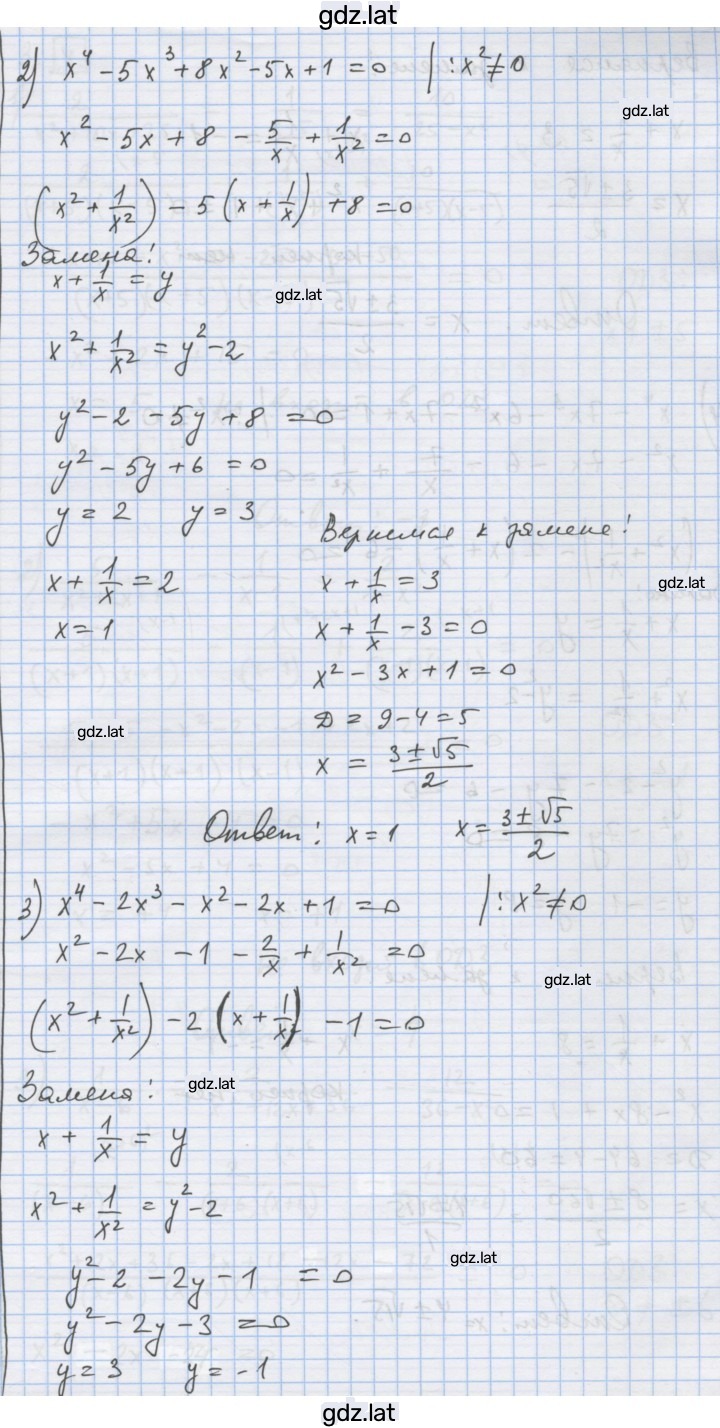 gdz.lat
2) x⁴ - 5x³ + 8x² - 5x + 1 = 0 | : x² ≠ 0
gdz.lat
x² - 5x + 8 - 5/x + 1/x² = 0
(x² + 1/x²) - 5(x + 1/x) + 8 = 0
Замена!
x + 1/x = y
gdz.lat
x² + 1/x² = y² - 2
y² - 2 - 5y + 8 = 0
y² - 5y + 6 = 0
y = 2 y = 3
Вернемся к замене!
x + 1/x = 2 x + 1/x = 3
gdz.lat
x = 1 x + 1/x - 3 = 0
x² - 3x + 1 = 0
D = 9 - 4 = 5
gdz.lat
x = (3 ± √5)/2
Ответ: x = 1 x = (3 ± √5)/2
3) x⁴ - 2x³ - x² - 2x + 1 = 0 | : x² ≠ 0
x² - 2x - 1 - 2/x + 1/x² = 0
gdz.lat
(x² + 1/x²) - 2(x + 1/x²) - 1 = 0
gdz.lat
Замена:
x + 1/x = y
x² + 1/x² = y² - 2
gdz.lat
y² - 2 - 2y - 1 = 0
y² - 2y - 3 = 0
y = 3 y = -1
gdz.lat